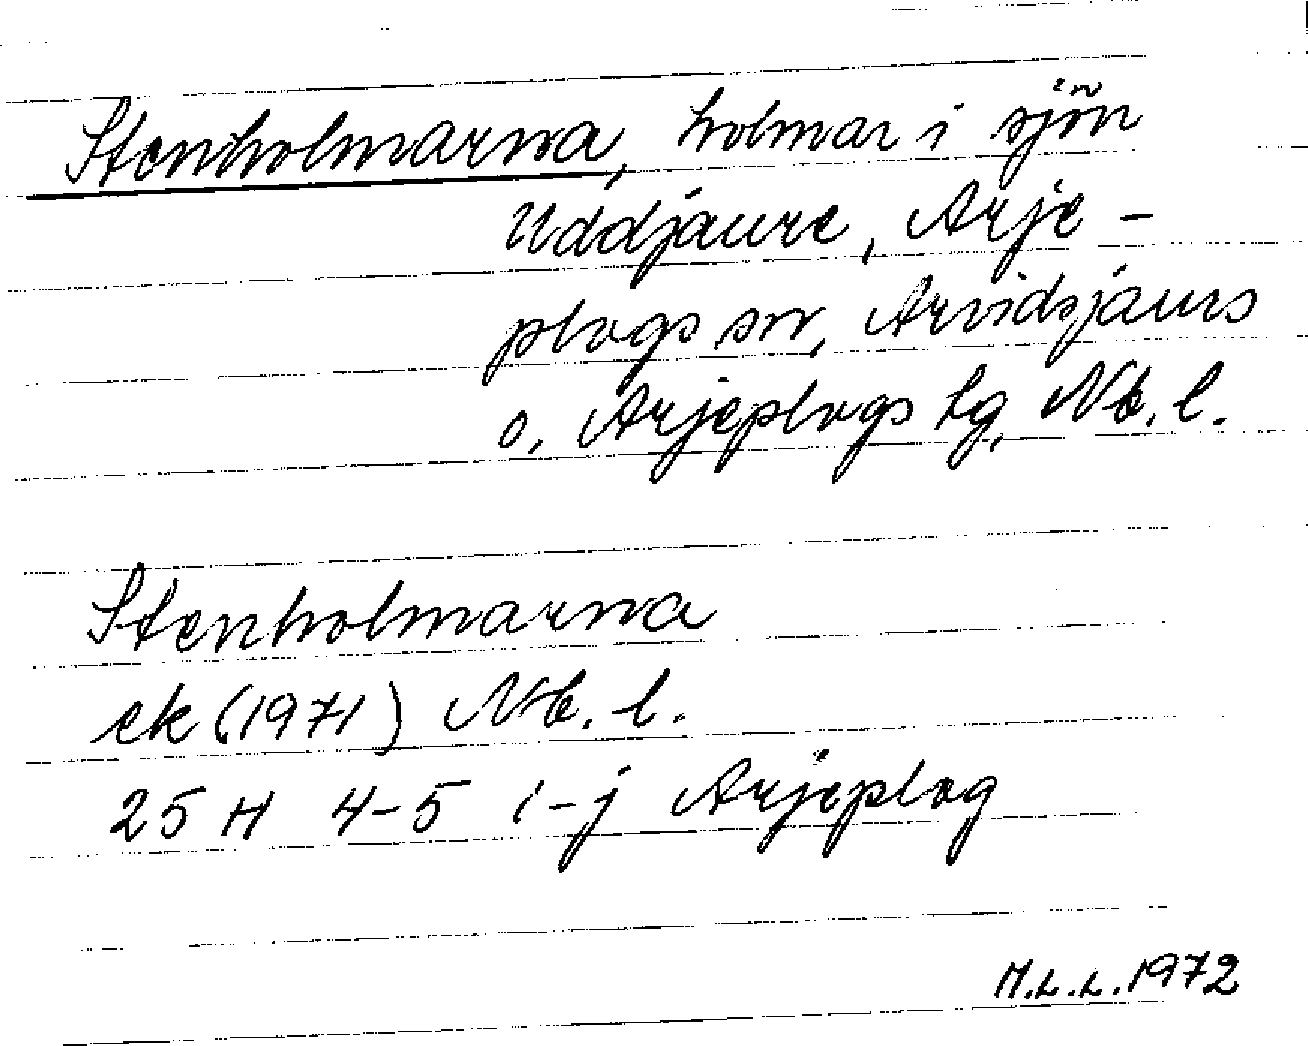 Stenholmarna, holmar i sjön
Uddjaure, Arje-
plogs sn, Arvidsjaurs
o. Arjeplogs tg, Nb. l.
Stenholmarna
ek (1971) Nb. l.
25 H 4-5 i-j Arjeplog
M.L.L. 1972